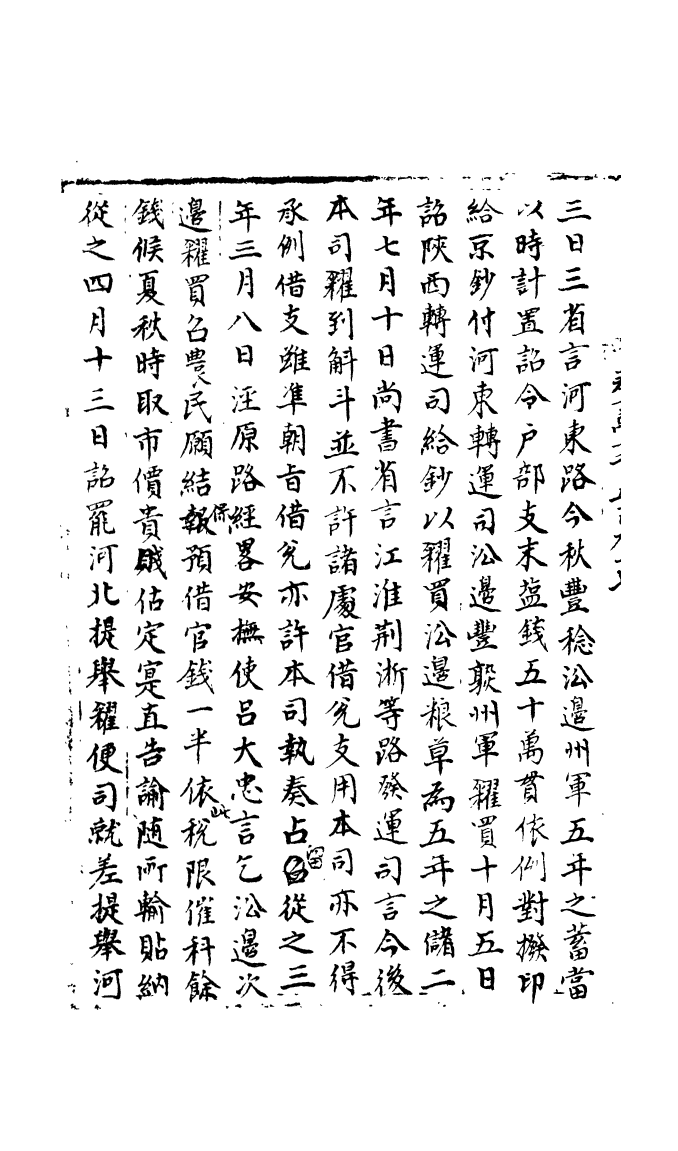 三日三省言河東路今秋豐稔㳂邊州軍五年之蓄當
以時計置詔令户部支末盐錢五十萬貫依例對撥印
給京鈔付河東轉運司㳂邊豐熟州軍糴買十月五日
詔陝西轉運司給鈔以糴買㳂邊粮草為五年之儲二
年七月十日尚書省言江淮荆浙等路發運司言今後
本司糴到斛斗並不許諸處官借兊支用本司亦不得
承例借支雖凖朝旨借兊亦許本司執奏占留從之三
年三月八日涇原路經畧安撫使吕大忠言乞㳂邊次
邊糴買召農民願結保預借官錢一半依此税限催科餘
錢候夏秋時取市價貴賤估定寔直告諭随所輸貼納
從之四月十三日詔罷河北提舉糴便司就差提舉河